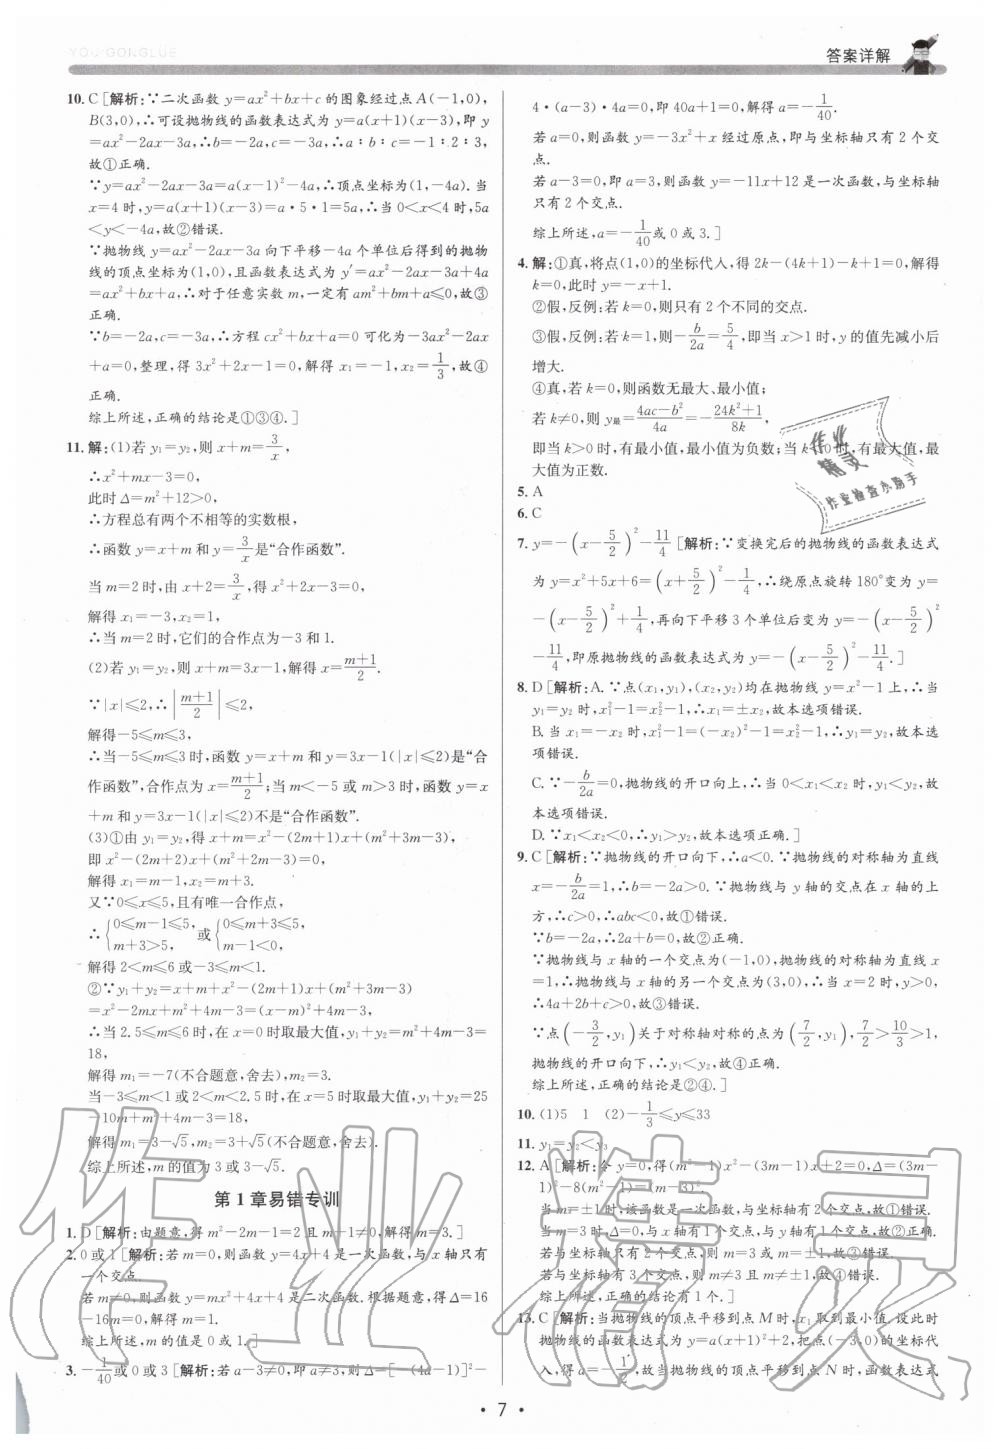 YOU GONGLUE
答案详解
10. C [解析:∵二次函数 y=ax²+bx+c 的图象经过点 A(-1,0),
B(3,0),∴可设抛物线的函数表达式为 y=a(x+1)(x-3),即 y
=ax²-2ax-3a,∴b=-2a,c=-3a,∴a∶b∶c=-1∶2∶3,
故①正确.
∵y=ax²-2ax-3a=a(x-1)²-4a,∴顶点坐标为(1,-4a).当
x=4 时,y=a(x+1)(x-3)=a·5·1=5a,∴当 0<x<4 时,5a
<y<-4a,故②错误.
∵抛物线 y=ax²-2ax-3a 向下平移-4a 个单位后得到的抛物
线的顶点坐标为(1,0),且函数表达式为 y′=ax²-2ax-3a+4a
=ax²+bx+a,∴对于任意实数 m,一定有 am²+bm+a≤0,故③
正确.
∵b=-2a,c=-3a,∴方程 cx²+bx+a=0 可化为-3ax²-2ax
+a=0,整理,得 3x²+2x-1=0,解得 x₁=-1,x₂=1/3,故④
正确.
综上所述,正确的结论是①③④.]
11. 解:(1)若 y₁=y₂,则 x+m=3/x,
∴x²+mx-3=0,
此时 Δ=m²+12>0,
∴方程总有两个不相等的实数根,
∴函数 y=x+m 和 y=3/x是“合作函数”.
当 m=2 时,由 x+2=3/x,得 x²+2x-3=0,
解得 x₁=-3,x₂=1,
∴当 m=2 时,它们的合作点为-3 和 1.
(2)若 y₁=y₂,则 x+m=3x-1,解得 x=(m+1)/2.
∵|x|≤2,∴|(m+1)/2|≤2,
解得-5≤m≤3,
∴当-5≤m≤3 时,函数 y=x+m 和 y=3x-1(|x|≤2)是“合
作函数”,合作点为 x=(m+1)/2;当 m<-5 或 m>3 时,函数 y=x
+m 和 y=3x-1(|x|≤2)不是“合作函数”.
(3)①由 y₁=y₂,得 x+m=x²-(2m+1)x+(m²+3m-3),
即 x²-(2m+2)x+(m²+2m-3)=0,
解得 x₁=m-1,x₂=m+3.
又∵0≤x≤5,且有唯一合作点,
∴{0≤m-1≤5, 或 {0≤m+3≤5,
m+3>5, m-1<0,
解得 2<m≤6 或-3≤m<1.
②∵y₁+y₂=x+m+x²-(2m+1)x+(m²+3m-3)
=x²-2mx+m²+4m-3=(x-m)²+4m-3,
∴当 2.5≤m≤6 时,在 x=0 时取最大值,y₁+y₂=m²+4m-3=
18,
解得 m₁=-7(不合题意,舍去),m₂=3.
当-3≤m<1 或 2<m<2.5 时,在 x=5 时取最大值,y₁+y₂=25
-10m+m²+4m-3=18,
解得 m₁=3-√5,m₂=3+√5(不合题意,舍去).
综上所述,m 的值为 3 或 3-√5.
第 1 章易错专训
1. D [解析:由题意,得 m²-2m-1=2 且 m+1≠0,解得 m=3.]
2. 0 或 1 [解析:若 m=0,则函数 y=4x+4 是一次函数,与 x 轴只有
一个交点.
若 m≠0,则函数 y=mx²+4x+4 是二次函数.根据题意,得 Δ=16
-16m=0,解得 m=1.
综上所述,m 的值是 0 或 1.]
3. -1/40或 0 或 3 [解析:若 a-3≠0,即 a≠3,则 Δ=[-(4a-1)]²-
4·(a-3)·4a=0,即 40a+1=0,解得 a=-1/40.
若 a=0,则函数 y=-3x²+x 经过原点,即与坐标轴只有 2 个交
点.
若 a-3=0,即 a=3,则函数 y=-11x+12 是一次函数,与坐标轴
只有 2 个交点.
综上所述,a=-1/40或 0 或 3.]
4. 解:①真,将点(1,0)的坐标代入,得 2k-(4k+1)-k+1=0,解得
k=0,此时 y=-x+1.
②假,反例:若 k=0,则只有 2 个不同的交点.
③假,反例:若 k=1,则-b/2a=5/4,即当 x>1 时,y 的值先减小后
增大.
④真,若 k=0,则函数无最大、最小值;
若 k≠0,则 y最=(4ac-b²)/4a=-(24k²+1)/8k,
即当 k>0 时,有最小值,最小值为负数;当 k<0 时,有最大值,最
大值为正数.
5. A
6. C
7. y=-(x-5/2)²-11/4 [解析:∵变换完后的抛物线的函数表达式
为 y=x²+5x+6=(x+5/2)²-1/4,∴绕原点旋转 180°变为 y=
-(x-5/2)²+1/4,再向下平移 3 个单位后变为 y=-(x-5/2)²
-11/4,即原抛物线的函数表达式为 y=-(x-5/2)²-11/4.]
8. D [解析:A.∵点(x₁,y₁),(x₂,y₂)均在抛物线 y=x²-1 上,∴当
y₁=y₂ 时,x₁²-1=x₂²-1,∴x₁=±x₂,故本选项错误.
B.当 x₁=-x₂ 时,x₁²-1=(-x₂)²-1=x₂²-1,∴y₁=y₂,故本选
项错误.
C.∵-b/2a=0,抛物线的开口向上,∴当 0<x₁<x₂ 时,y₁<y₂,故
本选项错误.
D.∵x₁<x₂<0,∴y₁>y₂,故本选项正确.]
9. C [解析:∵抛物线的开口向下,∴a<0.∵抛物线的对称轴为直线
x=-b/2a=1,∴b=-2a>0.∵抛物线与 y 轴的交点在 x 轴的上
方,∴c>0,∴abc<0,故①错误.
∵b=-2a,∴2a+b=0,故②正确.
∵抛物线与 x 轴的一个交点为(-1,0),抛物线的对称轴为直线 x
=1,∴抛物线与 x 轴的另一个交点为(3,0),∴当 x=2 时,y>0,
∴4a+2b+c>0,故③错误.
∵点(-3/2,y₁)关于对称轴对称的点为(7/2,y₁),7/2>10/3>1,
抛物线的开口向下,∴y₁<y₂,故④正确.
综上所述,正确的结论是②④.]
10. (1)5 1 (2)-1/3≤y≤33
11. y₁=y₂<y₃
12. A [解析:令 y=0,得(m²-1)x²-(3m-1)x+2=0,Δ=(3m-
1)²-8(m²-1)=(m-3)².
当 m=±1 时,该函数是一次函数,与坐标轴有 2 个交点,故①错误.
当 m=3 时,Δ=0,与 x 轴有 1 个交点,与 y 轴有 1 个交点,故②正确.
若与坐标轴只有 2 个交点,则 m=3 或 m=±1,故③错误.
若与坐标轴有 3 个交点,则 m≠3 且 m≠±1,故④错误.
综上所述,正确的结论有 1 个.]
13. C [解析:当抛物线的顶点平移到点 M 时,x₁ 取到最小值,设此时
抛物线的函数表达式为 y=a(x+1)²+2,把点(-3,0)的坐标代
入,得 a=-1/2,故当抛物线的顶点平移到点 N 时,函数表达式
· 7 ·
作业精灵
作业检查小助手
作业精灵